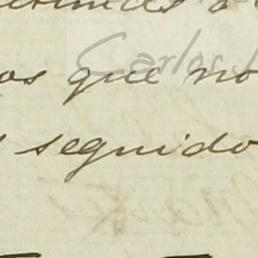 Carlos
os que no
seguido